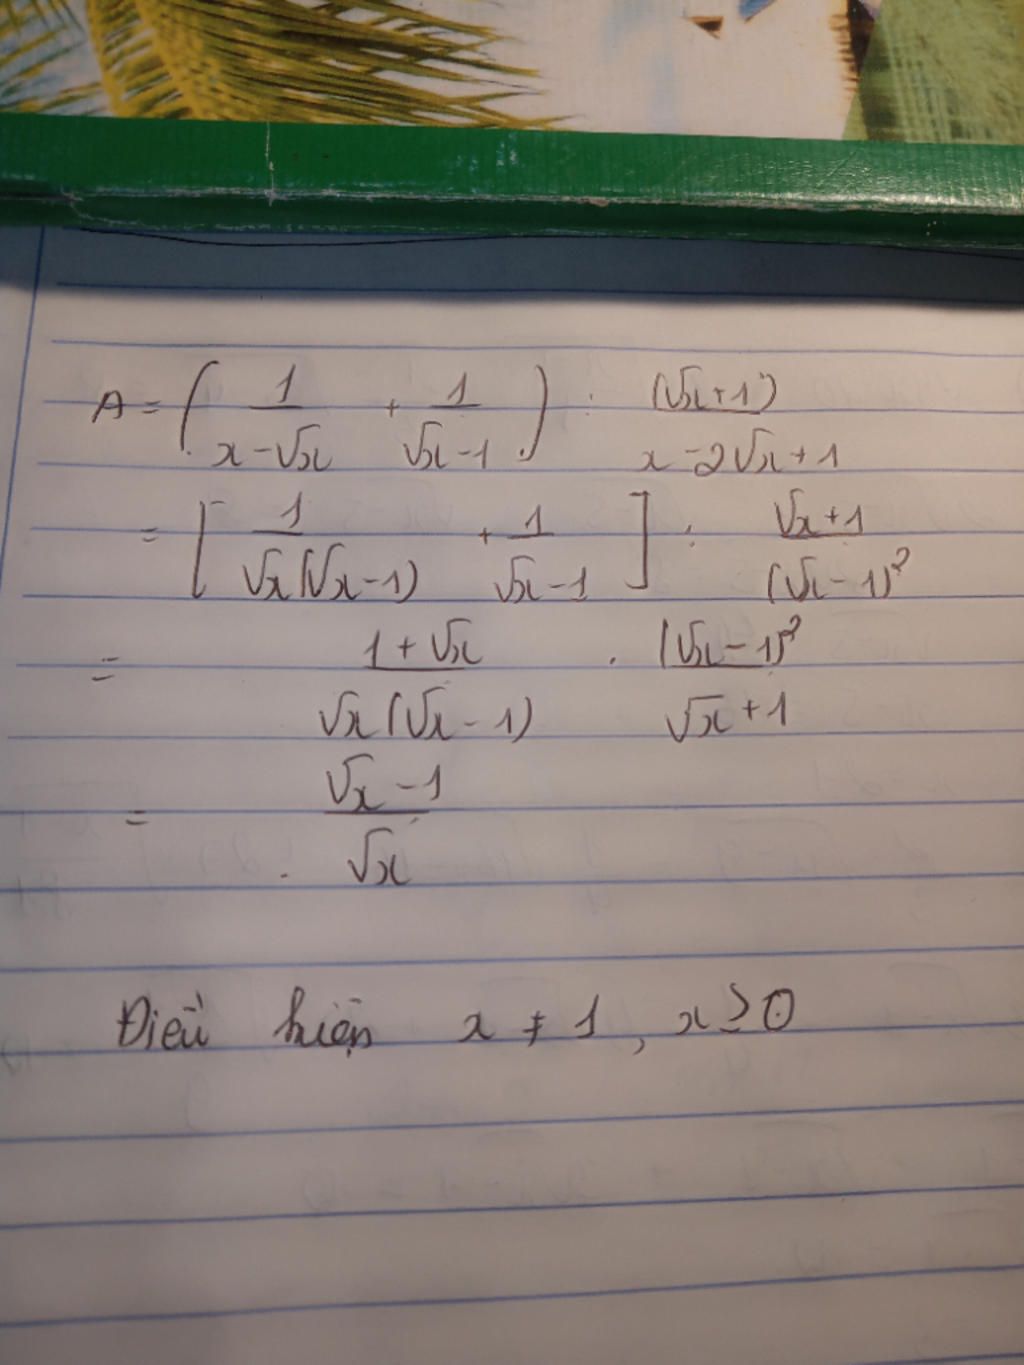 A = ( 1/(x-√x) + 1/(√x-1) ) : (√x+1)/(x-2√x+1)
= [ 1/(√x(√x-1)) + 1/(√x-1) ] : (√x+1)/(√x-1)²
= (1+√x)/(√x(√x-1)) . (√x-1)²/(√x+1)
= (√x-1)/√x
Điều kiện x ≠ 1, x ≥ 0